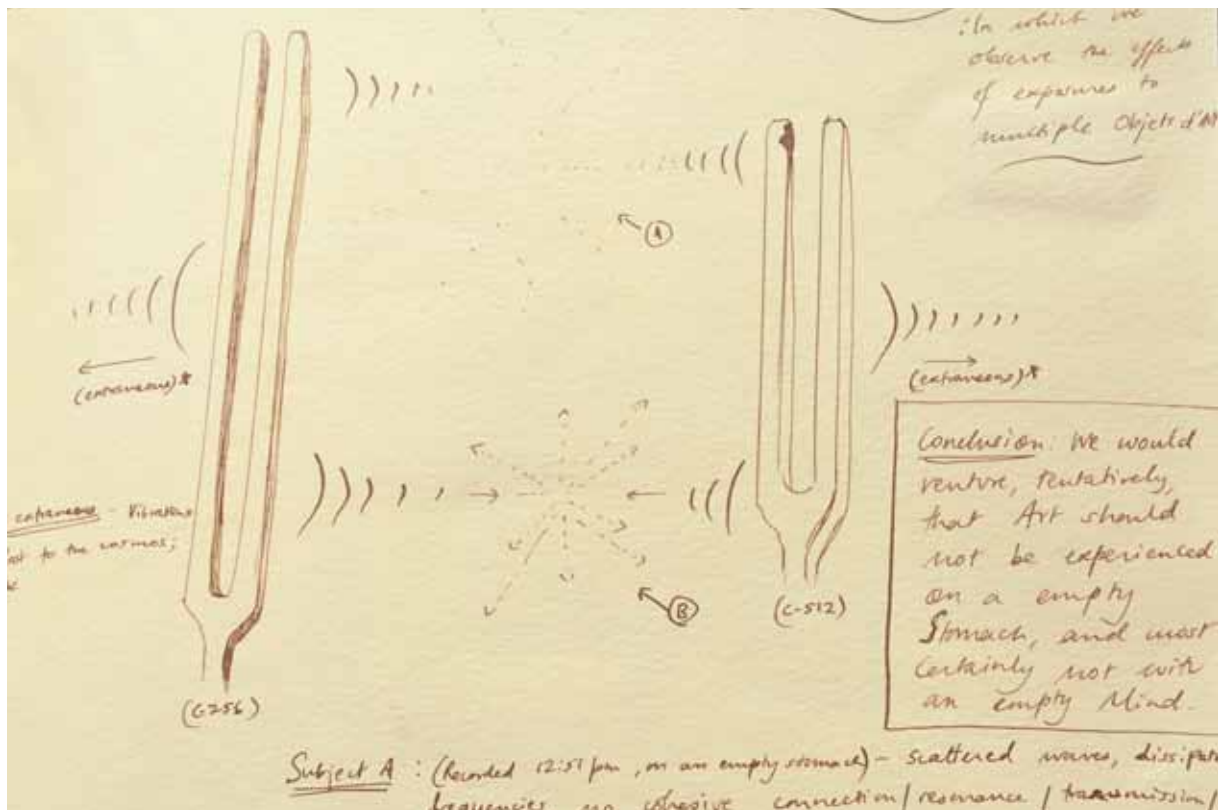 : In which we
observe the effects
of exposures to
multiple Objets d'Art
A
(extraneous)*
(extraneous)*
extraneous - Vibrations
to the cosmos;
B
(C-512)
(C256)
Conclusion: We would
venture, tentatively,
that Art should
not be experienced
on a empty
Stomach, and most
Certainly not with
an empty Mind.
Subject A : (Recorded 12:51pm, on an empty stomach) - scattered waves,
frequencies no cohesive connection/resonance/transmission/